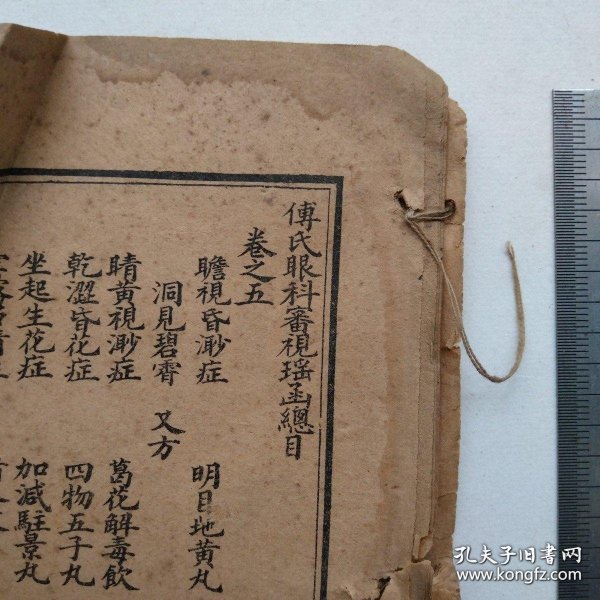 傅氏眼科審視瑤函總目
卷之五
瞻視昏渺症 明目地黃丸
洞見碧霄 又方
睛黃視渺症 葛花解毒飲
乾澀昏花症 四物五子丸
坐起生花症 加減駐景丸
孔夫子旧书网
www.kongfz.com